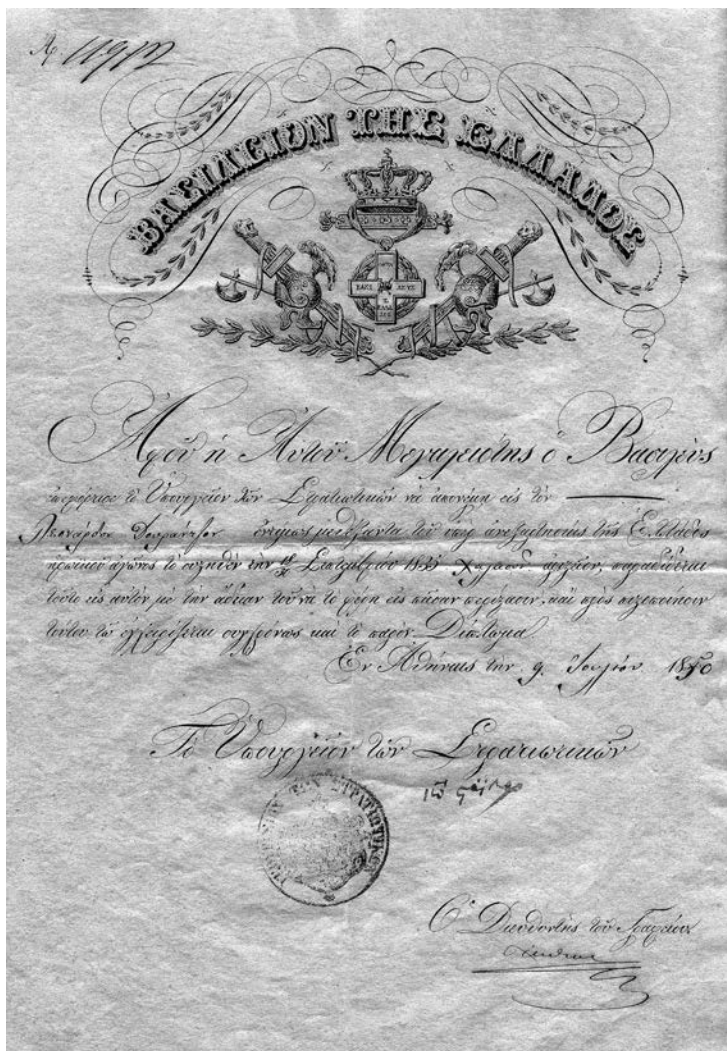 ΒΑΣΙΛΕΙΟΝ ΤΗΣ ΕΛΛΑΔΟΣ
Ἀφοῦ ἡ Αὐτοῦ Μεγαλειότης ὁ Βασιλεὺς
τὸ Ὑπουργεῖον τῶν Στρατιωτικῶν νὰ ἀπονέμῃ εἰς τὸν
μετέξαντα τοῦ ὑπὲρ ἀνεξαρτησίας τῆς Ἑλλάδος
ἡρωϊκοῦ ἀγῶνος τὸ τὴν Σεπτεμβρίου 1835 ἀριστεῖον, παραδίδεται
τοῦτο εἰς αὐτὸν μὲ τὴν ἄδειαν τοῦ νὰ τὸ φέρῃ εἰς πᾶσαν περίστασιν, καὶ πρὸς πιστοποίησιν
τούτου τῷ ἐγχειρίζεται συγχρόνως καὶ τὸ παρὸν Δίπλωμα
Ἐν Ἀθήναις τὴν 9 Ἰουλίου
Τὸ Ὑπουργεῖον τῶν Στρατιωτικῶν
Ὁ Διευθυντὴς τοῦ Γραφείου